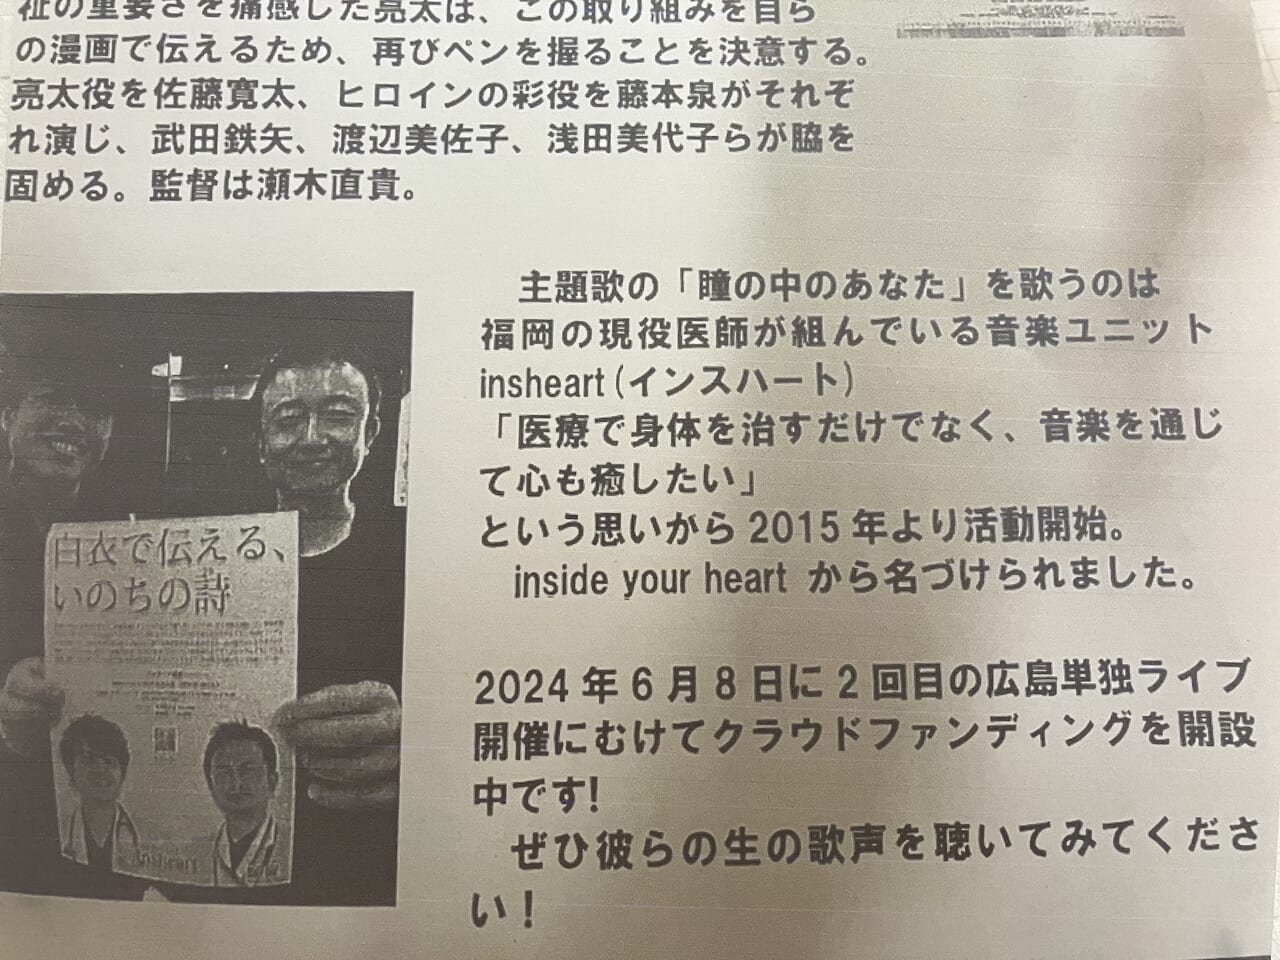 祉の重要さを痛感した亮太は、この取り組みを自ら
の漫画で伝えるため、再びペンを握ることを決意する。
亮太役を佐藤寛太、ヒロインの彩役を藤本泉がそれぞ
れ演じ、武田鉄矢、渡辺美佐子、浅田美代子らが脇を
固める。監督は瀬木直貴。
主題歌の「瞳の中のあなた」を歌うのは
福岡の現役医師が組んでいる音楽ユニット
insheart(インスハート)
「医療で身体を治すだけでなく、音楽を通じ
て心も癒したい」
という思いから 2015 年より活動開始。
inside your heart から名づけられました。
2024 年 6 月 8 日に 2 回目の広島単独ライブ
開催にむけてクラウドファンディングを開設
中です!
ぜひ彼らの生の歌声を聴いてみてくださ
い！
白衣で伝える、
いのちの詩
Insheart